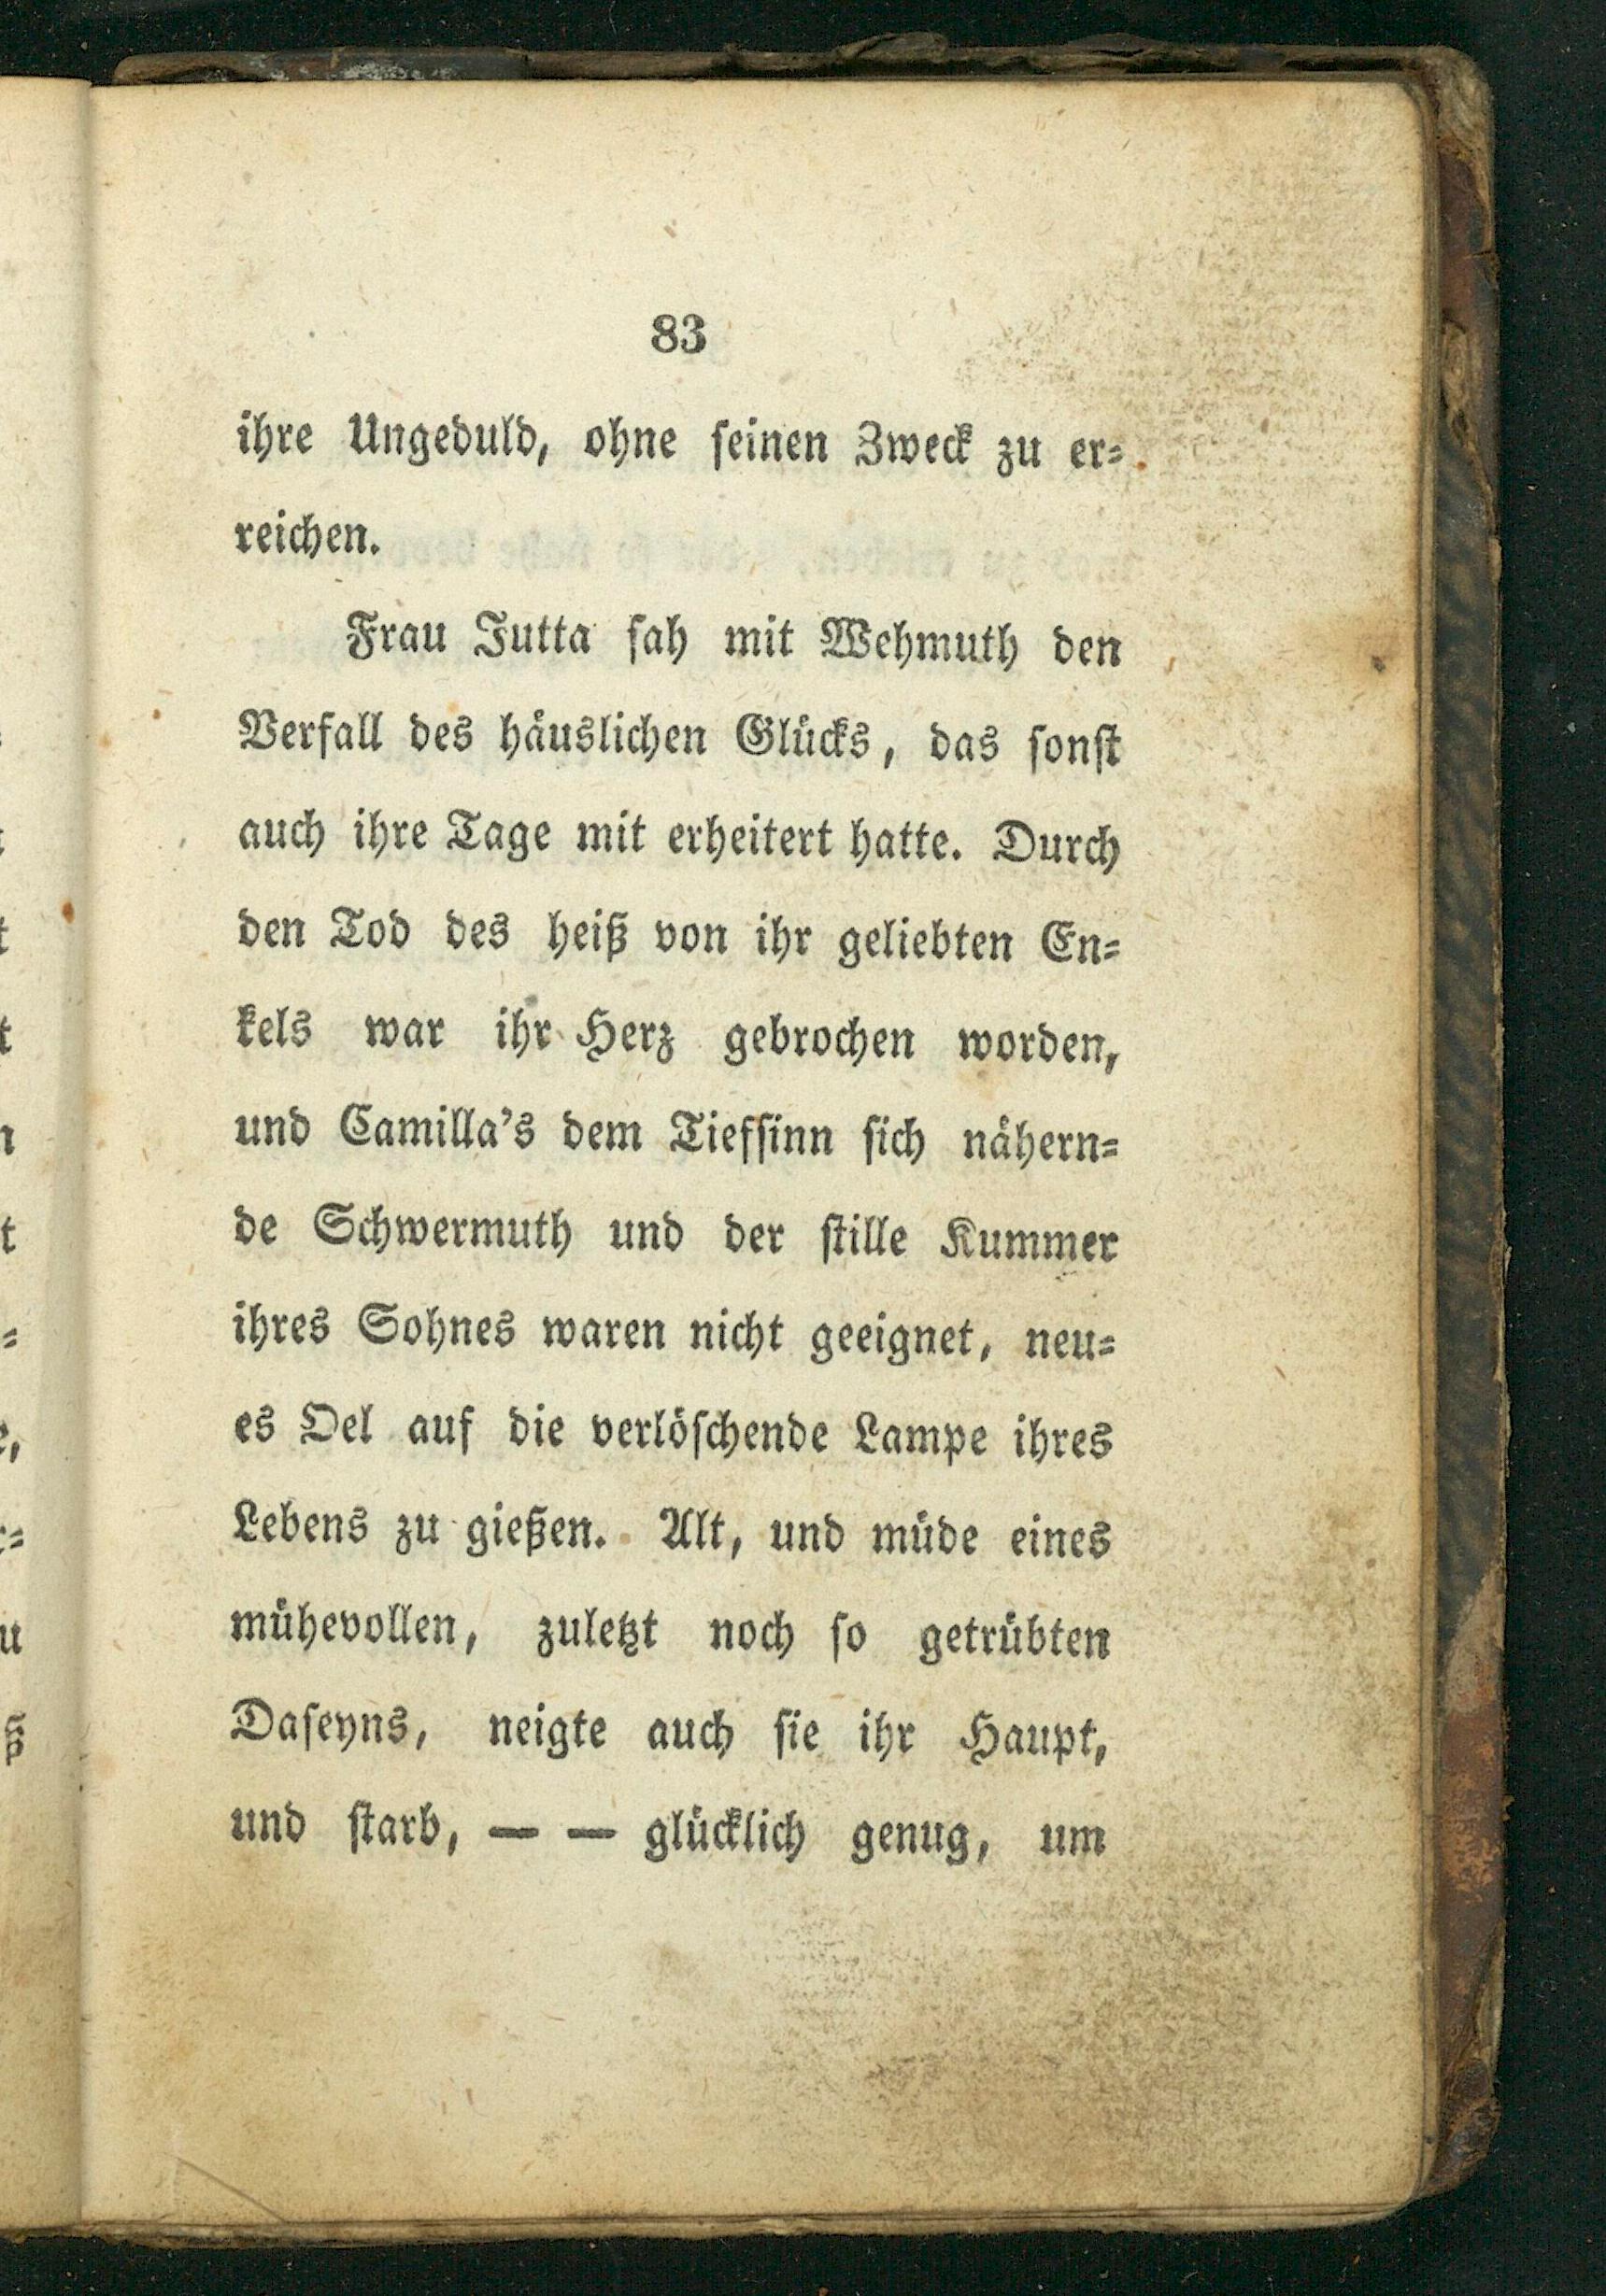 83
ihre Ungeduld, ohne seinen Zweck zu er-
reichen.
Frau Jutta sah mit Wehmuth den
Verfall des häuslichen Glücks, das sonst
auch ihre Tage mit erheitert hatte. Durch
den Tod des heiß von ihr geliebten En-
kels war ihr Herz gebrochen worden,
und Camilla's dem Tiefsinn sich nähern-
de Schwermuth und der stille Kummer
ihres Sohnes waren nicht geeignet, neu-
es Oel auf die verlöschende Lampe ihres
Lebens zu gießen. Alt, und müde eines
mühevollen, zuletzt noch so getrübten
Daseyns, neigte auch sie ihr Haupt,
und starb, — — glücklich genug, um